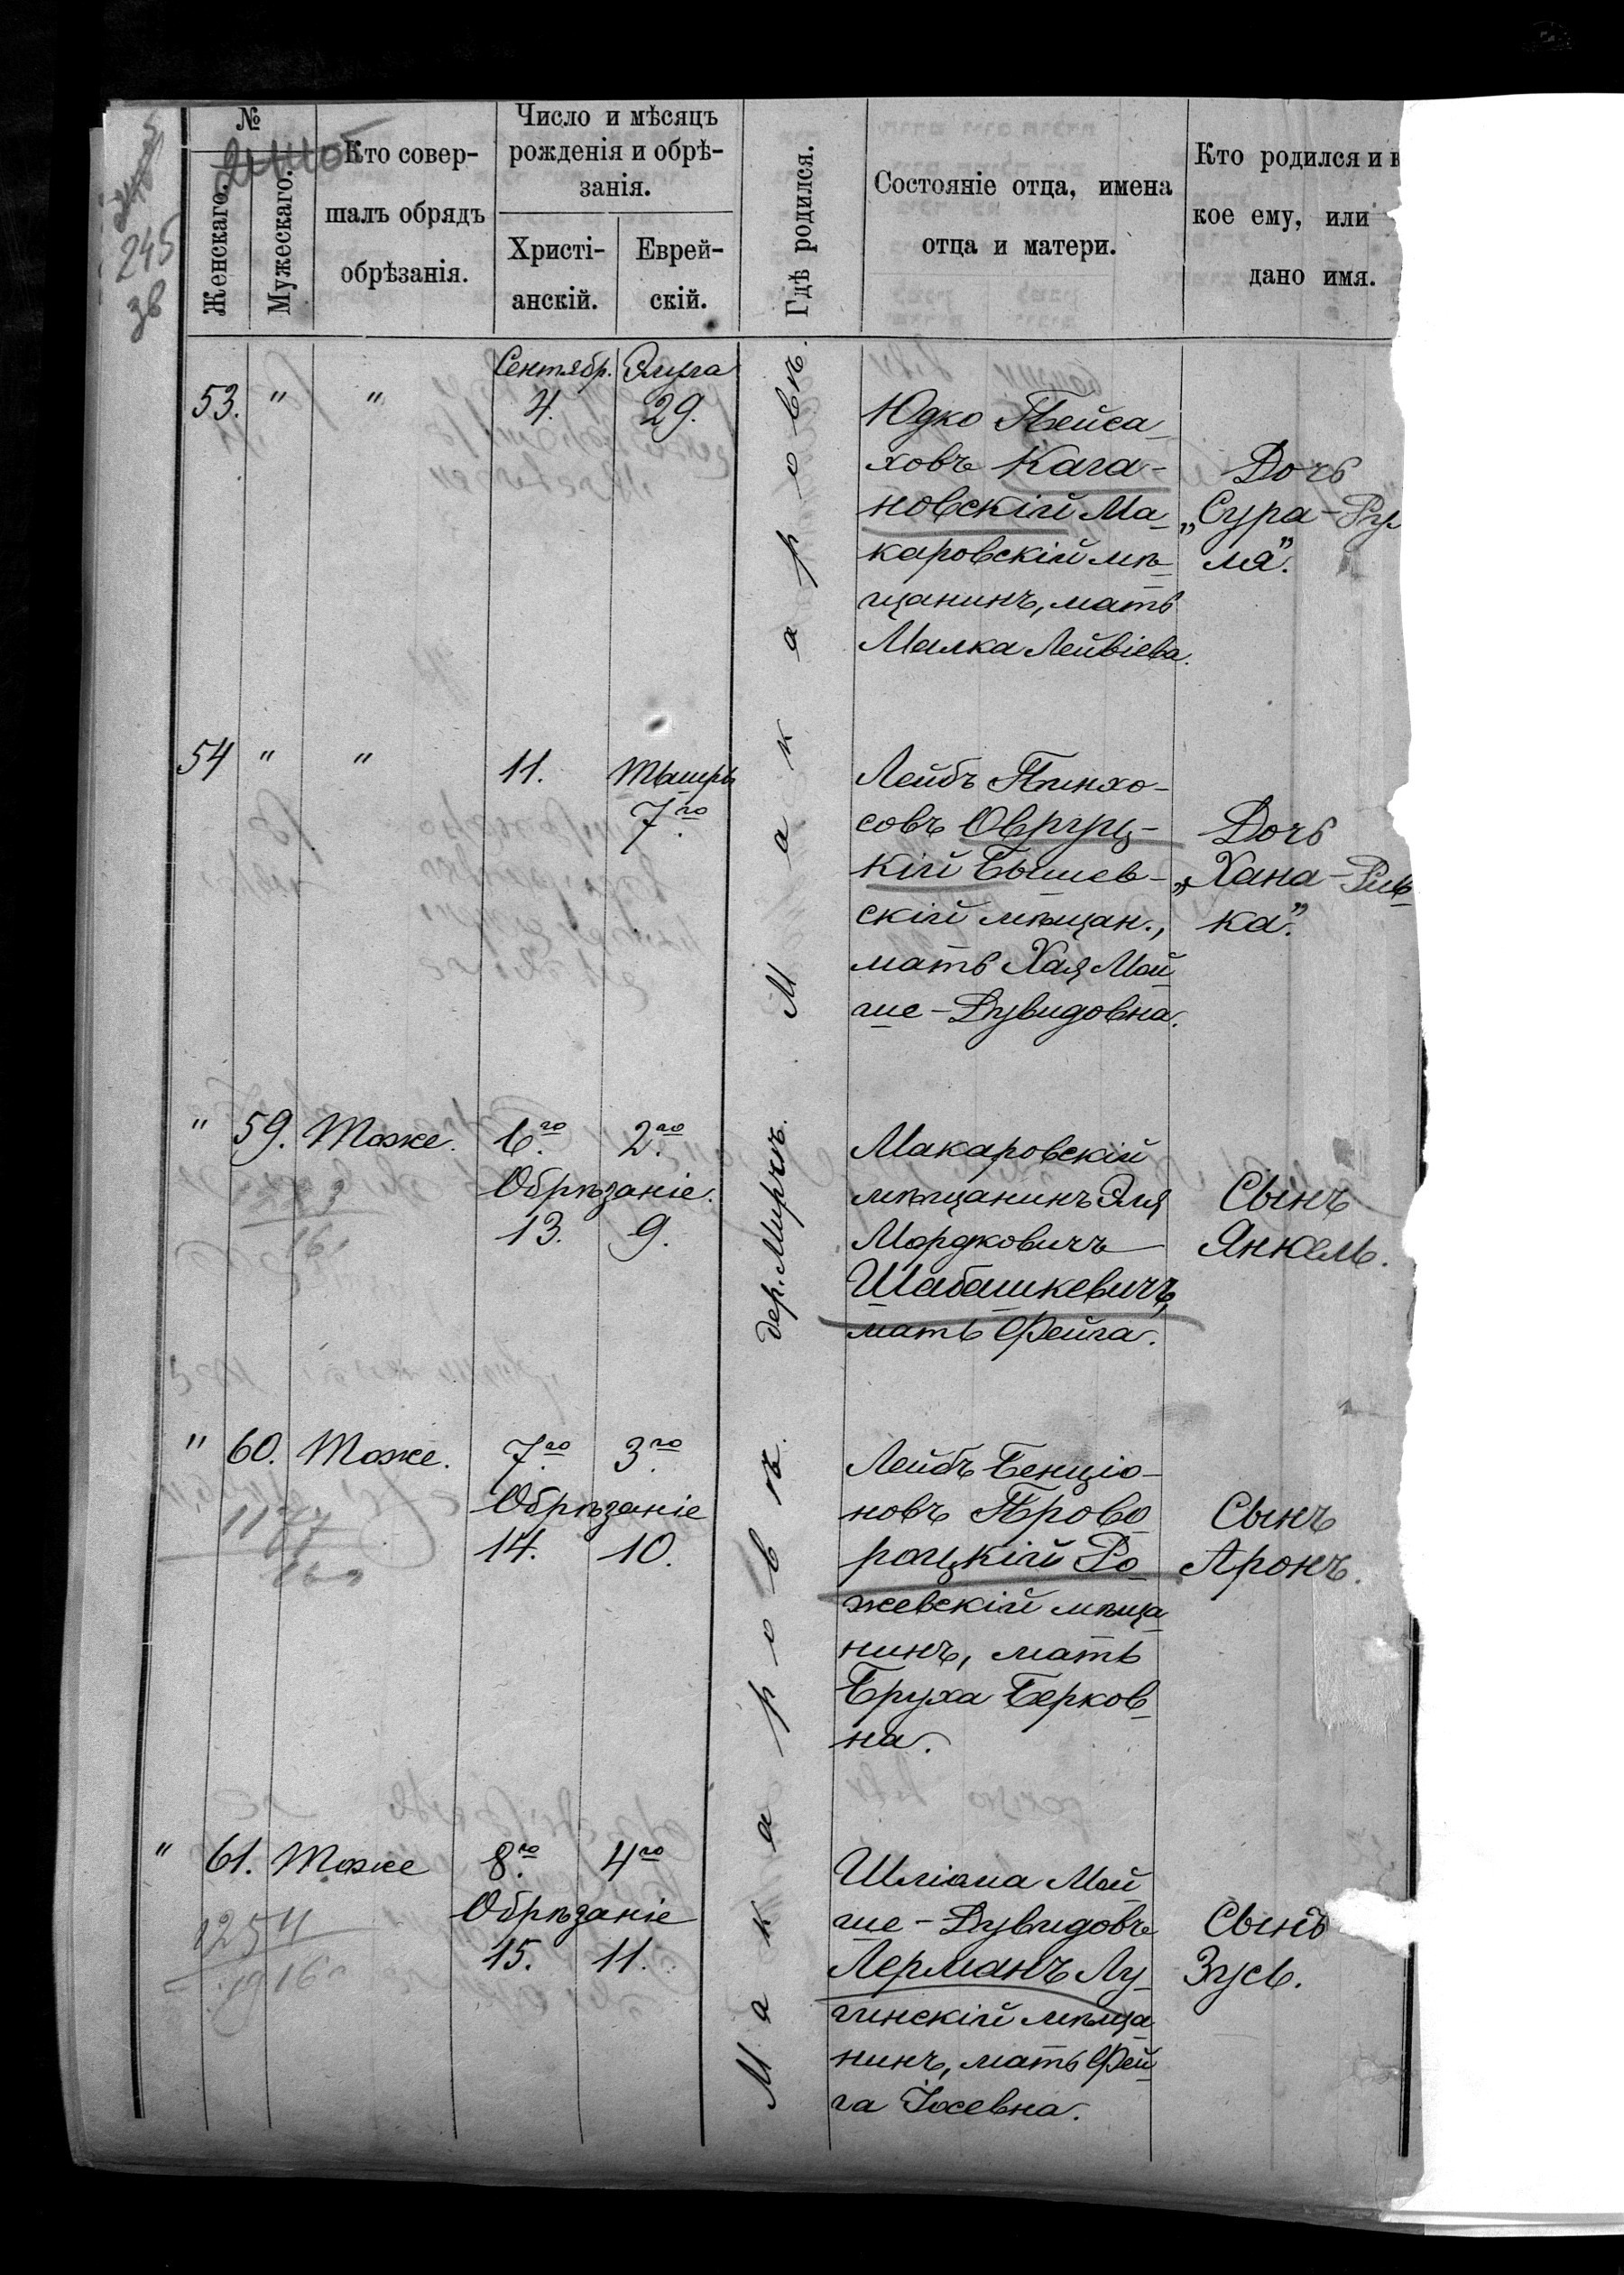 245
зв
№
Женскаго.
Мужескаго.
Кто совер-
шалъ обрядъ
обрѣзанія.
Число и мѣсяцъ
рожденія и обрѣ-
занія.
Христі-
анскій.
Еврей-
скій.
Гдѣ родился.
Состояніе отца, имена
отца и матери.
Кто родился и к
кое ему, или
дано имя.
53. " "
Сентябр. Элула
4. 29.
Макаровъ.
Юдко Пейса-
ховъ Кага-
новскій Ма-
каровскій мѣ-
щанинъ, мать
Малка Лейвіева.
Дочь
„Сура-
ля".
54 " "
11. Тышрь
7го
Лейбъ Пинхо-
совъ Овруц-
кій Бышев-
скій мѣщан.,
мать Хая Мой-
ше-Дувидовна.
Дочь
„Хана-Рив-
ка".
" 59. Тоже. 6го 2го
Обрѣзаніе.
13. 9.
дер. Мирчъ.
Макаровскій
мѣщанинъ Эля
Мордковичъ
Шабашкевичъ,
мать Фейга.
Сынъ
Янкель.
" 60. Тоже. 7го 3го
Обрѣзаніе
14. 10.
Макаровъ.
Лейбъ Бенціо-
новъ Прово
роцкій Ро-
жевскій мѣща
нинъ, мать
Бруха Берков-
на.
Сынъ
Аронъ.
" 61. Тоже 8го 4го
Обрѣзаніе
15. 11.
Шліома Мой
ше-Дувидовъ
Лерманъ Лу-
гинскій мѣща
нинъ, мать Фей-
га Іосевна.
Сынъ
Зусь.